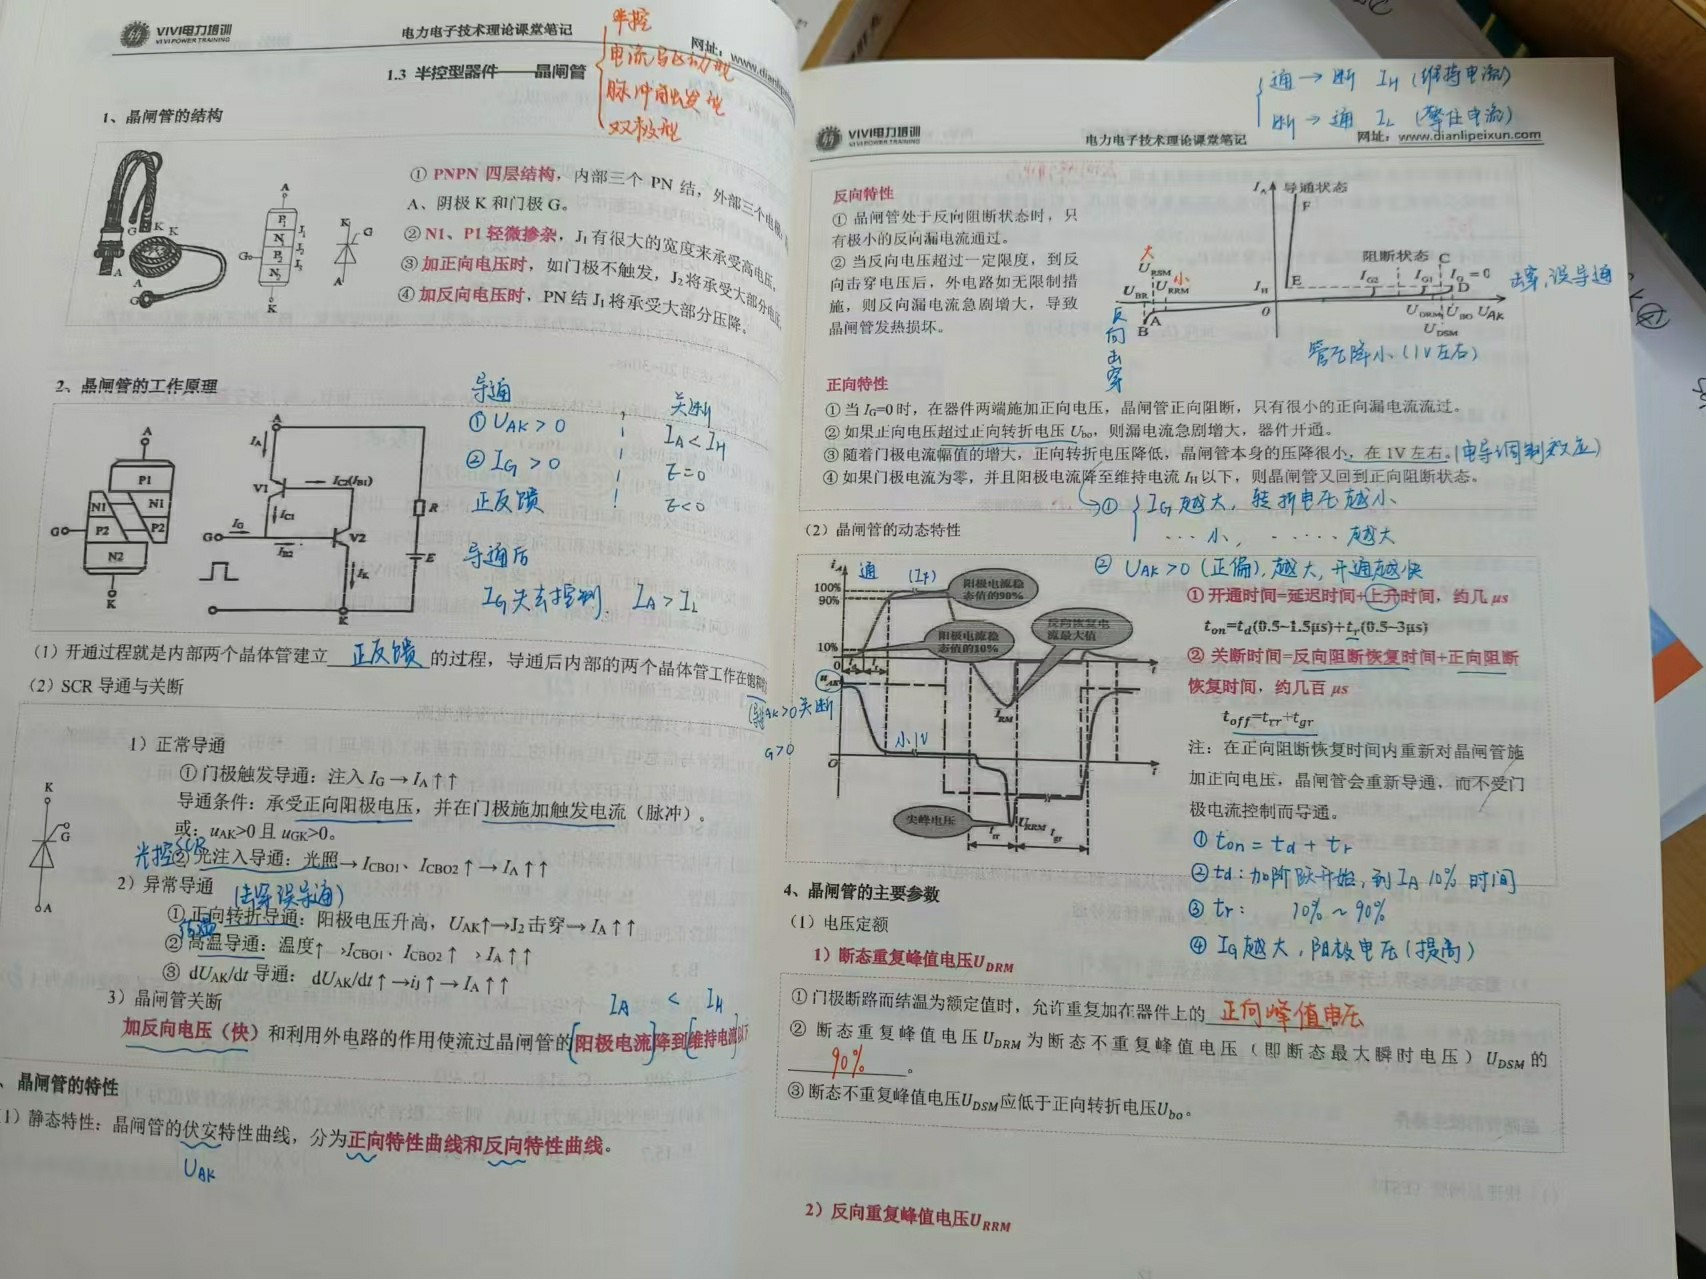 VIVI电力培训
VIVI POWER TRAINING
电力电子技术理论课堂笔记
网址：www.dianlipei
半控
电流驱动型
脉冲触发型
双极型
1.3 半控型器件——晶闸管
1、晶闸管的结构
① PNPN 四层结构，内部三个 PN 结，外部三个电极
A、阴极 K 和门极 G。
② N1、P1 轻微掺杂，J1 有很大的宽度来承受高电压，
③ 加正向电压时，如门极不触发，J2 将承受大部分电压
④ 加反向电压时，PN 结 J1 将承受大部分压降。
G K K
A
A
G
A
P1
N1
P2
N2
J1
J2
J3
G
K
K
G
A
2、晶闸管的工作原理
导通
① UAK > 0
② IG > 0
正反馈
导通后
IG 失去控制. IA > IL
关断
IA < IH
E = 0
E < 0
A
P1
N1
N1
P2
P2
N2
G
K
A
IA
V1
IC2(IB1)
IC1
IG
G
IB2
V2
IK
K
R
E
（1）开通过程就是内部两个晶体管建立 正反馈 的过程，导通后内部的两个晶体管工作在饱和
（2）SCR 导通与关断
1）正常导通
① 门极触发导通：注入 IG → IA ↑↑
导通条件：承受正向阳极电压，并在门极施加触发电流（脉冲）。
或：uAK>0 且 uGK>0。
光控SCR
② 光注入导通：光照→ICBO1、ICBO2 ↑→IA ↑↑
2）异常导通 (击穿误导通)
① 正向转折导通：阳极电压升高，UAK↑→J2 击穿→IA ↑↑
② 高温导通：温度↑→ICBO1、ICBO2 ↑→IA ↑↑
③ dUAK/dt 导通：dUAK/dt↑→ij↑→IA ↑↑
K
G
A
3）晶闸管关断
IA < IH
加反向电压（快）和利用外电路的作用使流过晶闸管的阳极电流降到维持电流以下
、晶闸管的特性
1）静态特性：晶闸管的伏安特性曲线，分为正向特性曲线和反向特性曲线。
UAK
通 → 断 IH (维持电流)
断 → 通 IL (擎住电流)
VIVI电力培训
VIVI POWER TRAINING
电力电子技术理论课堂笔记
网址：www.dianlipeixun.com
反向特性
① 晶闸管处于反向阻断状态时，只
有极小的反向漏电流通过。
② 当反向电压超过一定限度，到反
向击穿电压后，外电路如无限制措
施，则反向漏电流急剧增大，导致
晶闸管发热损坏。
IA 导通状态
F
阻断状态 C
E
IG2 IG1 IG = 0
D
击穿,误导通
大
URSM 小
UBR URRM
IH
0
A
B
UDRM UBO UAK
UDSM
反向击穿
管压降小 (1V左右)
正向特性
① 当 IG=0 时，在器件两端施加正向电压，晶闸管正向阻断，只有很小的正向漏电流流过。
② 如果正向电压超过正向转折电压 Ubo，则漏电流急剧增大，器件开通。
③ 随着门极电流幅值的增大，正向转折电压降低，晶闸管本身的压降很小，在 1V 左右。(电导调制效应)
④ 如果门极电流为零，并且阳极电流降至维持电流 IH 以下，则晶闸管又回到正向阻断状态。
① IG 越大, 转折电压越小
··· 小, ····· 越大
② UAK > 0 (正偏), 越大, 开通越快
（2）晶闸管的动态特性
iA
100%
90%
10%
0
通 (IF)
阳极电流稳态值的90%
阳极电流稳态值的10%
反向恢复电流最大值
t
IRM
uAK
小1V
O
t
尖峰电压
URRM
trr
tgr
uAK>0 关断
G>0
① 开通时间=延迟时间+上升时间，约几 μs
ton=td(0.5~1.5μs)+tr(0.5~3μs)
② 关断时间=反向阻断恢复时间+正向阻断
恢复时间，约几百 μs
toff=trr+tgr
注：在正向阻断恢复时间内重新对晶闸管施
加正向电压，晶闸管会重新导通，而不受门
极电流控制而导通。
① ton = td + tr
② td: 加阶跃开始, 到 IA 10% 时间
③ tr: 10% ~ 90%
④ IG 越大, 阳极电压 (提高)
4、晶闸管的主要参数
（1）电压定额
1）断态重复峰值电压UDRM
① 门极断路而结温为额定值时，允许重复加在器件上的 正向峰值电压
② 断态重复峰值电压 UDRM 为断态不重复峰值电压（即断态最大瞬时电压）UDSM 的
90% 。
③ 断态不重复峰值电压UDSM应低于正向转折电压Ubo。
2）反向重复峰值电压URRM